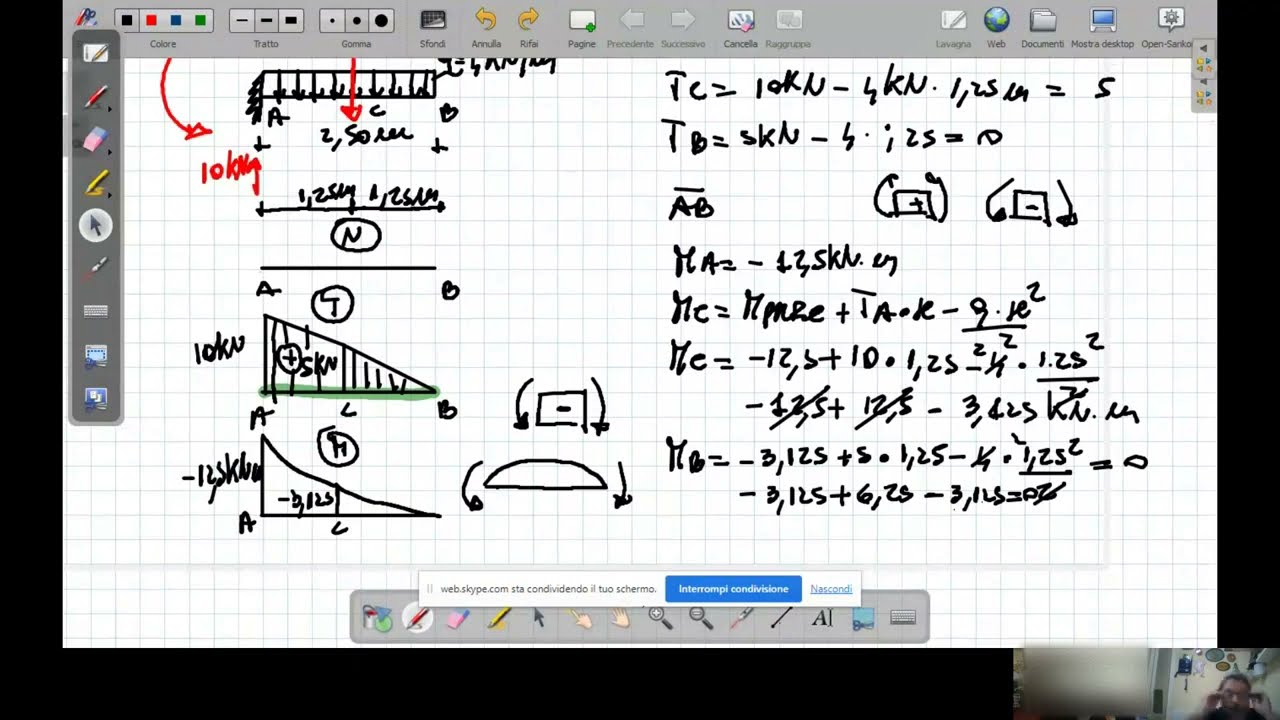 Colore Tratto Gomma Sfondi Annulla Rifai Pagine Precedente Successivo Cancella Raggruppa Lavagna Web Documenti Mostra desktop Open-Sankoré
A C B
2,50m
10kN
1,25m 1,25m
N
A B
T
10kN + 5kN
A C B
M
-12,5kNm -3,125
A C
TC = 10KN - 4KN · 1,25m = 5
TB = 5KN - 4 · 1,25 = 0
AB + -
MA = - 12,5kN·m
MC = Mprec + TA·x - q·x²
2
MC = -12,5 + 10 · 1,25 - 4 · 1.25²
2
-12,5 + 12,5 - 3,125 kN·m
-
MB = -3,125 + 5 · 1,25 - 4 · 1,25² = 0
2
-3,125 + 6,25 - 3,125 = 0
web.skype.com sta condividendo il tuo schermo. Interrompi condivisione Nascondi
A